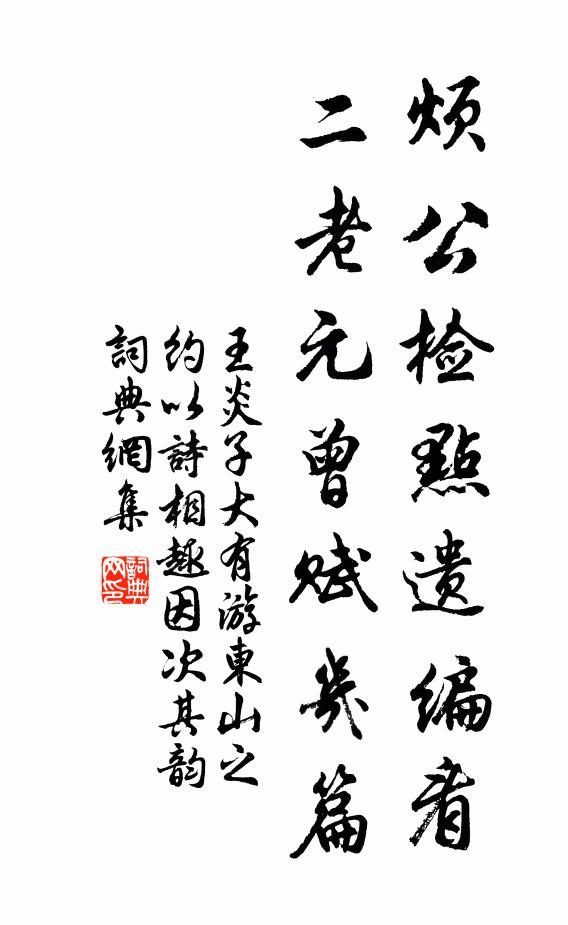 烦公检點遗编看
二老元曾赋幾篇
王炎子大有游東山之
约以詩相趣因次其韵
詞典網集
詞典网印